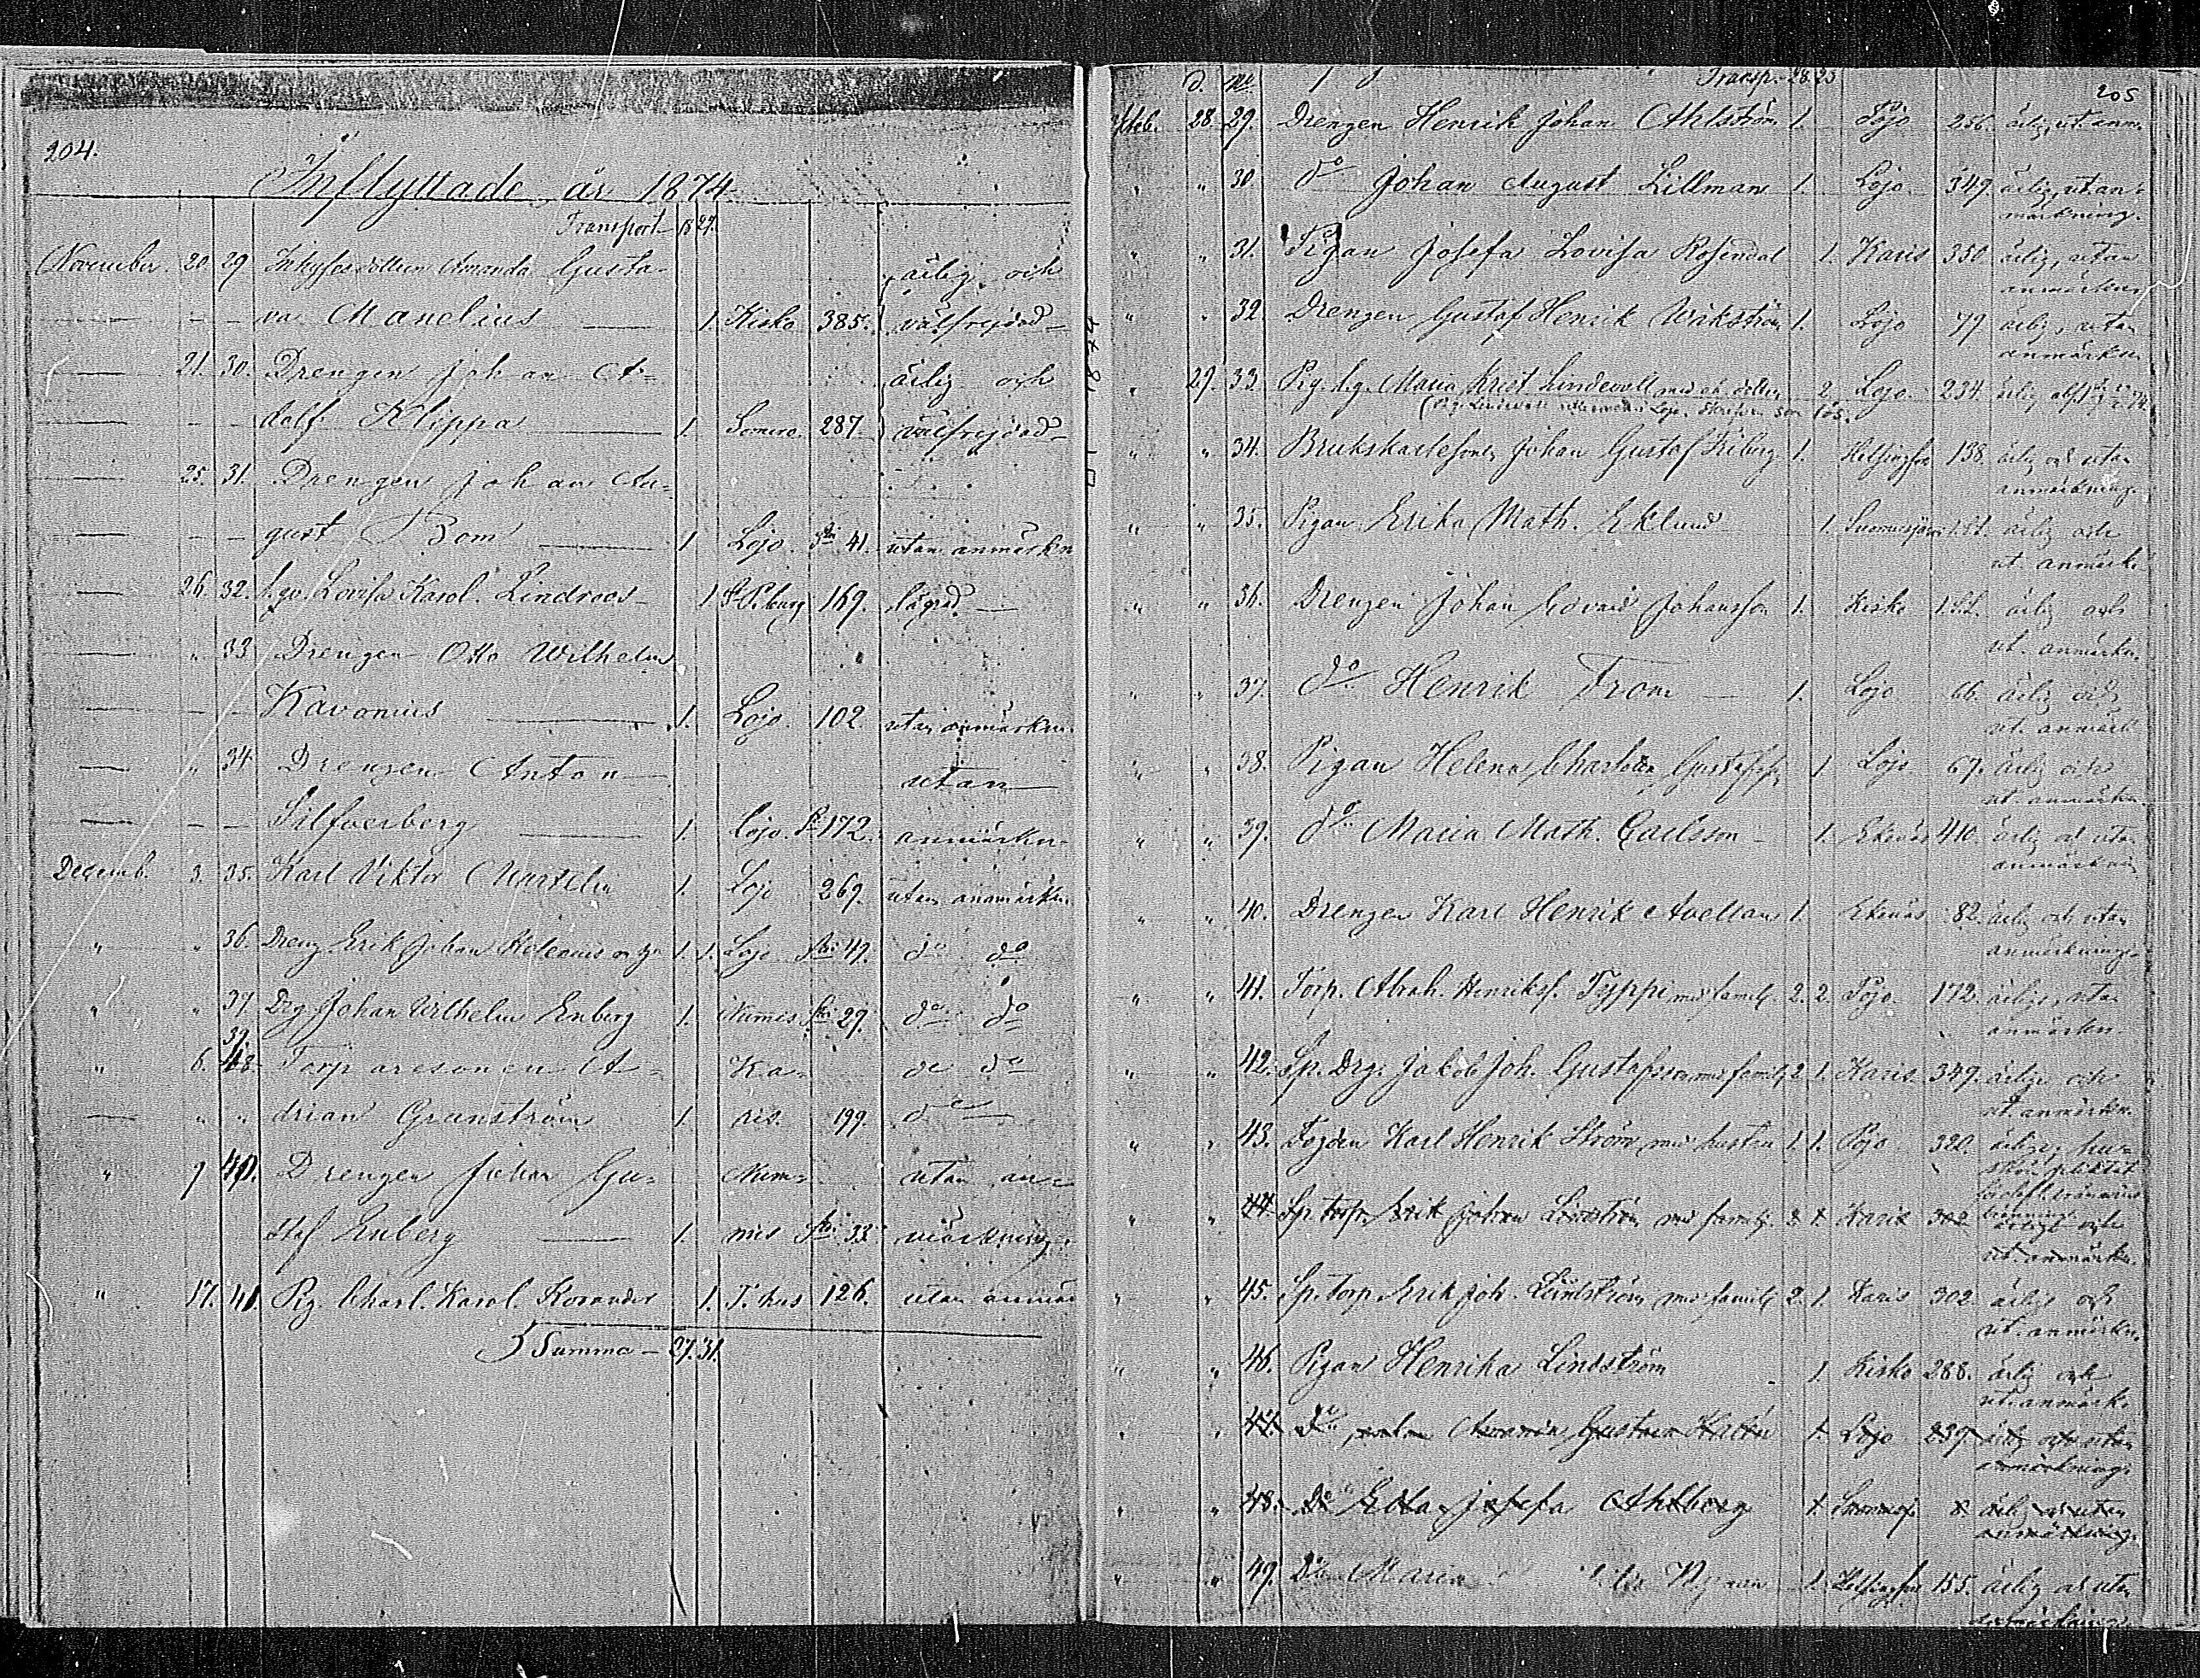 204.
Inflyttade år 1874
Transport 18 27.
November. 20 29 Inhyses dottern Amanda Gusta- ärlig och
va Manelius 1. Kisko 385. välfrejdad
21. 30. Drengen Johan A- ärlig och
dolf Klippa 1. Somero. 287. välfrejdad
25. 31. Drengen Johan Au-
gust Bom 1 Lojo. 41. utan anmärkn
26. 32. Lovisa Karol. Lindroos 1 169.
" 33 Drengen Otto Wilhelm
Kavonius 1. Lojo. 102 utan anmärkn.
" 34 Drengen Anton utan
Silfverberg 1. Lojo. 172. anmärkn.
Decemb. 3. 35. Karl Viktor 1. Lojo 269. utan anmärkn.
" " 36. Dreng Erik Johan 1. 1. Lojo 49. do do
" " 37 Drg Johan Wilhelm Enberg 1. Numis 29. do do
39.
" 6. Torparesonen A- Ka- do do
" " drian Granström 1. ris. 199. do
" 7 40. Drengen Johan Gu- Num- utan an-
staf Enberg 1. mis 33. märkning.
" 17. 41. Pig. Charl. Karol. Korander 1. T.hus 126. utan anmär
Summa 27. 31.
d. No Transp. 28. 23
205
28. 29. Drengen Henrik Johan Ahlström 1. Pojo 256. ärlig, ut. anm.
" " 30 do Johan August Lillman 1. Lojo. 349. ärlig, utan
märkning.
" " 31. Pigan Josefa Lovisa Rosendal 1. Karis 350. ärlig, utan
anmärkn.
" " 32. Drengen Gustaf Henrik Wikström 1. Lojo 79 ärlig, utan
anmärkn.
" 29. 33. Maria Krist. Lindevall med dotter 2. Lojo. 234. ärlig
" " 34. Johan Gustaf Friberg 1. Helsingfors 138. ärlig och utan
anmärkning.
" " 35. Pigan Erika Math. Eklund 1. ärlig och
ut. anmärk.
" " 36. Drengen Johan Edvard Johansson 1. Kisko ärlig och
ut. anmärkn.
" " 37. do Henrik Trom 1. Lojo 66. ärlig och
ut. anmärk
" " 38. Pigan Helena Charlotta Gustafsd. 1 Lojo 67. ärlig och
ut. anmärkn.
" " 39. do Maria Math. Carlsson 1. Ekenäs 410. ärlig och utan
anmärkn.
" " 40. Drengen Karl Henrik Avellan 1. Ekenäs 82. ärlig och utan
anmärkning.
" " 41. Torp. Abrah. Henriks. Typpi med familj 2. 2. Pojo. 172. ärlige, utan
anmärkn.
" " 42. Sp. Drg. Jakob Joh. Gustafsson med familj 2 1. Karis 349. ärlige och
ut. anmärkn.
" " 43. Fogden Karl Henrik Ström med hustru 1. 1. Pojo. 320. ärlige,
" " 44. Sp. torp. Erik Johan Lindström med familj. 2. 1. Karis 302 ärlige och
ut. anmärkn.
" " 45. Sp. torp Erik Joh. Lindström med familj 2. 1. Karis 302. ärlige och
ut. anmärkn.
" " 46. Pigan Henrika Lindström 1. Kisko 288. ärlig och
ut. anmärk.
" " 47. Do Amanda Gustava 1. Lojo 239. ärlig och utan
anmärkning.
" " 48. Do Edla Josefa Ahlberg 1. 8. ärlig och utan
anmärkning.
" " 49. Do Maria Nyman 1. Helsingfors 155. ärlig och utan
anmärkning.